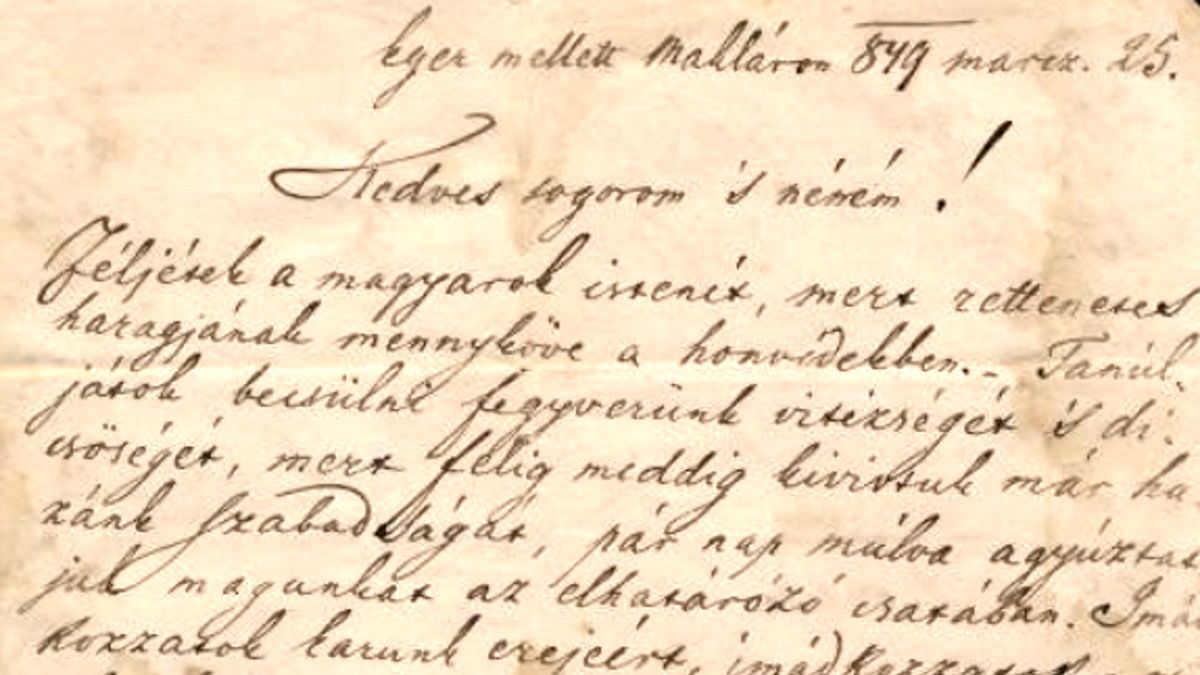 Eger mellett Makláron 849 marcz. 25.
Kedves sogorom 's néném!
Féljétek a magyarok istenét, mert rettenetes
haragjának mennyköve a honvédekben.– Tanúl-
játok becsülni fegyverünk vitézségét 's di-
csöségét, mert félig meddig kivivtuk már ha
zánk szabadságát, pár nap múlva agyúztat
juk magunkat az elhatározó csatában. Imád
kozzatok karunk erejéért, imádkozzatok